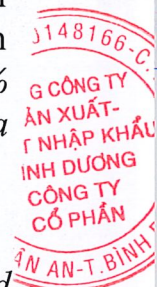 0148166-C.
G CÔNG TY
ẢN XUẤT-
NHẬP KHẨU
INH DƯƠNG
CÔNG TY
CỔ PHẦN
ĨAN AN-T.BÌNH
%
a